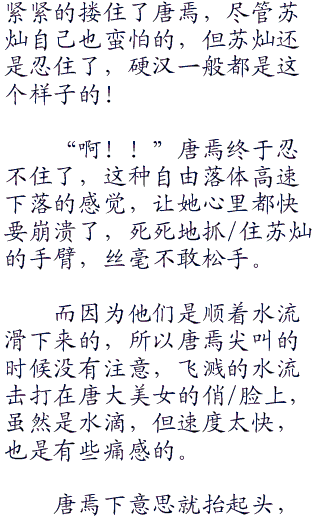 紧紧的搂住了唐焉，尽管苏
灿自己也蛮怕的，但苏灿还
是忍住了，硬汉一般都是这
个样子的！
“啊！！”唐焉终于忍
不住了，这种自由落体高速
下落的感觉，让她心里都快
要崩溃了，死死地抓/住苏灿
的手臂，丝毫不敢松手。
而因为他们是顺着水流
滑下来的，所以唐焉尖叫的
时候没有注意，飞溅的水流
击打在唐大美女的俏/脸上，
虽然是水滴，但速度太快，
也是有些痛感的。
唐焉下意思就抬起头，